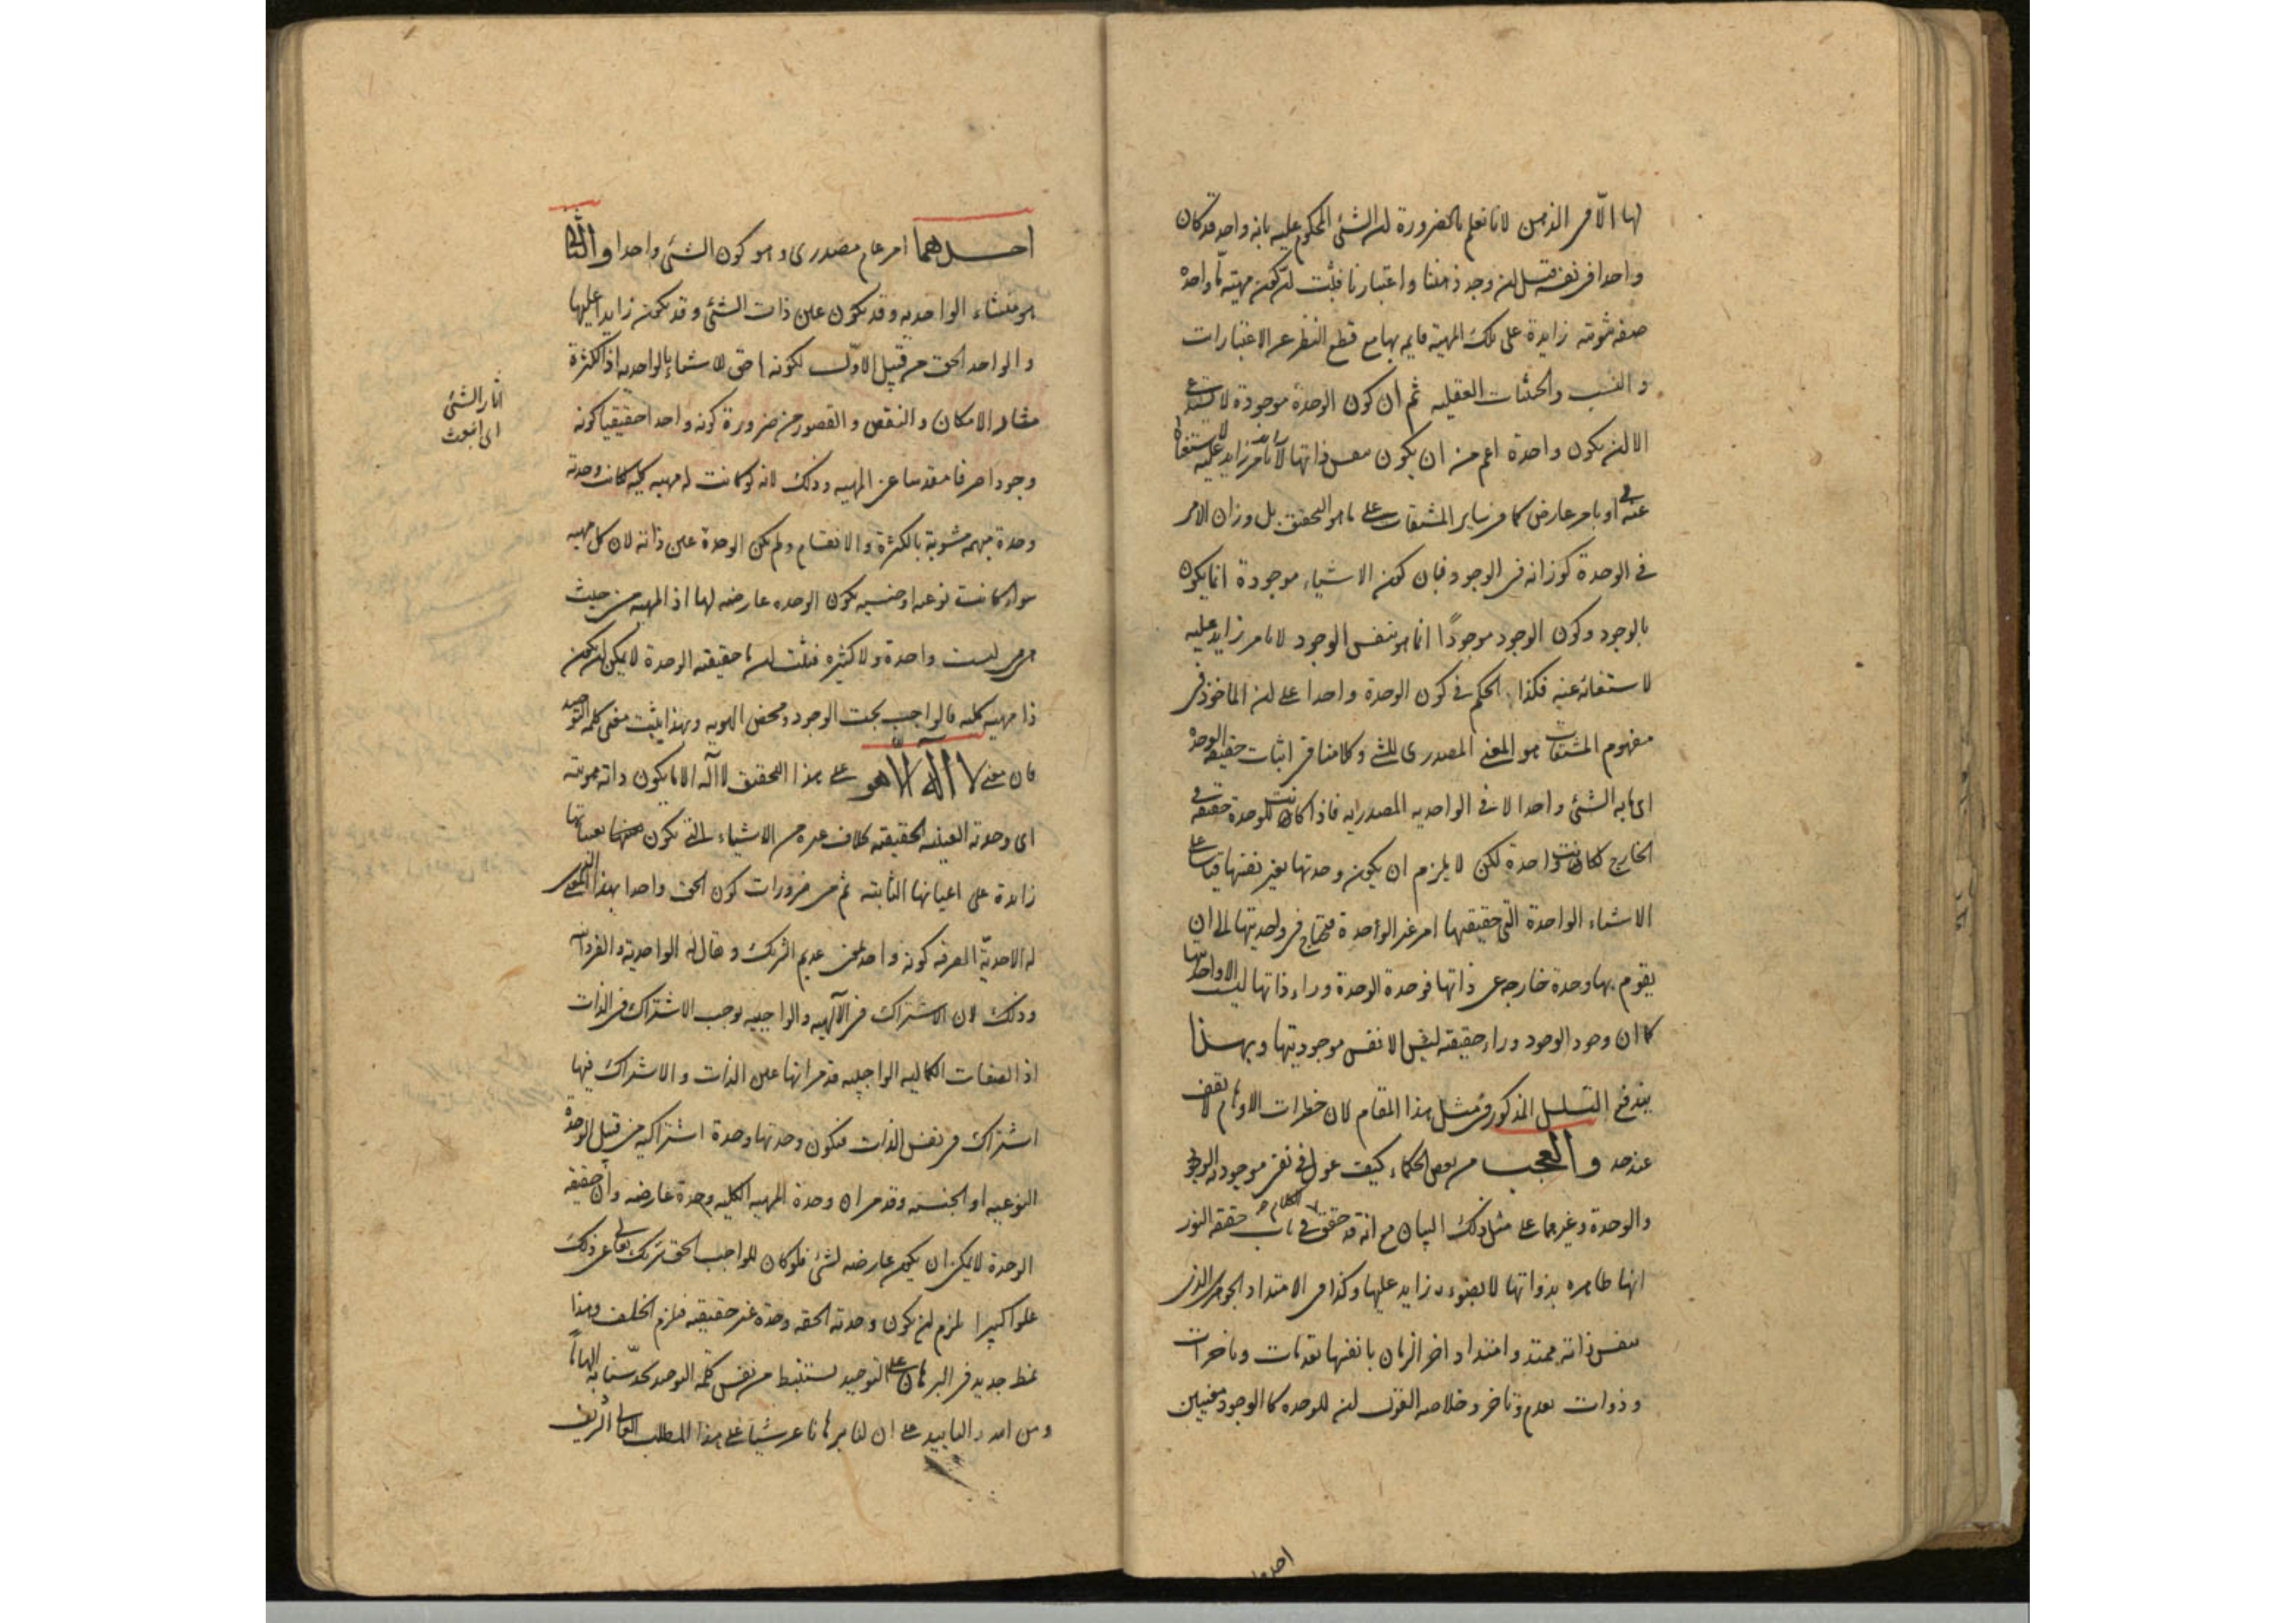 لها الّا في الذهن لانا نعلم بالضرورة ان الشئ المحكوم عليه بانه واحد قد كان
واحدا في نفسه قبل ان وجد ذهننا واعتبارنا فثبت ان كون مهية ما واحدة
صفه ثبوتيه زايدة على تلك المهية قايم بها مع قطع النظر عن الاعتبارات
و النسب والحيثيات العقليه ثم ان كون الوحدة موجودة لا يستدعي
الا ان يكون واحدة اعم من ان يكون بنفس ذاتها لا بامر زايد عليه
عنه او بامر عارض كما في ساير المشتقات على ما هو التحقيق بل وزان الامر
في الوحدة كوزانه في الوجود فان كون الاشياء موجودة انما يكون
بالوجود وكون الوجود موجودًا انما هو بنفس الوجود لا بامر زايد عليه
لاستغنائه عنه فكذا الحكم في كون الوحدة واحدا على ان الماخوذ في
مفهوم المشتقات هو المعنى المصدري للشئ وكلامنا في اثبات حقيقه الوحدة
اى ما به الشئ واحدا لا في الواحديه المصدريه فاذا كانت للوحدة حقيقه في
الخارج لكانت واحدة لكن لا يلزم ان يكون وحدتها بغير نفسها قياسا على
الاشياء الواحدة التي حقيقتها امر غير الواحدة فتحتاج في واحديتها الى ان
يقوم بها وحدة خارجه عن ذاتها فوحدة الوحدة وراء ذاتها ليست الا واحديتها
كما ان وجود الوجود وراء حقيقته ليس الا نفس موجوديتها وبهذا
يندفع التسلسل المذكور في مثل هذا المقام لان خطرات الاوهام لا تقف
عند حد والعجب من بعض الحكماء كيف عول في نفي موجوديه الوجود
والوحدة وغيرهما على مثل ذلك البيان مع انه قد حقق في باب حقيقه النور
انها ظاهره بذواتها لا بضوء زايد عليها وكذا في الامتداد الجوهري الذي
بنفس ذاته ممتد وامتداد اخر الزمان بانفسها تقدمات وتاخرات
و ذوات تقدم وتاخر وخلاصه القول ان للوحده كالوجود معنيين
احدهما
احدهما امر عام مصدرى وهو كون الشئ واحدا والثاني
هو منشاء الواحديه وقد يكون عين ذات الشئ وقد يكون زايدا عليها
والواحد الحق من قبيل الاوّل لكونه احق الاشياء بالواحديه اذ الكثرة
مثار الامكان والنقص والقصور من ضرورة كونه واحدا حقيقيا كونه
وجودا صرفا مقدسا عن المهيه وذلك لانه لو كانت له مهيه كليه كانت وحدته
وحدة مبهمه مشوبة بالكثرة والانقسام ولم يكن الوحدة عين ذاته لان كل مهيه
سواء كانت نوعيه او جنسيه يكون الوحده عارضه لها اذ المهيه من حيث
هي هي ليست واحدة ولا كثيره فثبت ان ما حقيقته الوحدة لا يمكن ان يكون
ذا مهيه كليه فالواجب بحت الوجود ومحض الهويه وبهذا يثبت معنى كلمه التوحيد
فان معنى لا اله الا هو على هذا التحقيق لا اله الا ما يكون ذاته هويته
اى وحدته العينيه الحقيقيه بخلاف غيره من الاشياء التي يكون تعيناتها
زايدة على اعيانها الثابته ثم من ضرورات كون الحق واحدا بهذا المعنى
له الاحديّة الصرفه كونه واحدا بمعنى عديم الشريك ويقال له الواحديه والفردانيه
وذلك لان الاشتراك في الآلهيه والواجبيه يوجب الاشتراك في الذات
اذ الصفات الكماليه الواجبيه قد مر انها عين الذات والاشتراك فيها
اشتراك في نفس الذات فيكون وحدتها وحدة اشتراكيه من قبيل الوحدة
النوعيه او الجنسيه وقد مر ان وحدة المهيه الكليه وحدة عارضه وان حقيقه
الوحدة لا يمكن ان يكون عارضه لشئ فلو كان للواجب الحق شريك تعالى عن ذلك
علوا كبيرا لزم ان يكون وحدته الحقه وحدة غير حقيقيه فلزم الخلف وهذا
نمط جديد في البرهان على التوحيد يستنبط من نفس كلمه التوحيد
ومن امداد التاييد على ان لنا برهانا عرشيا على هذا المطلب العالى الشريف
اثار الشئ